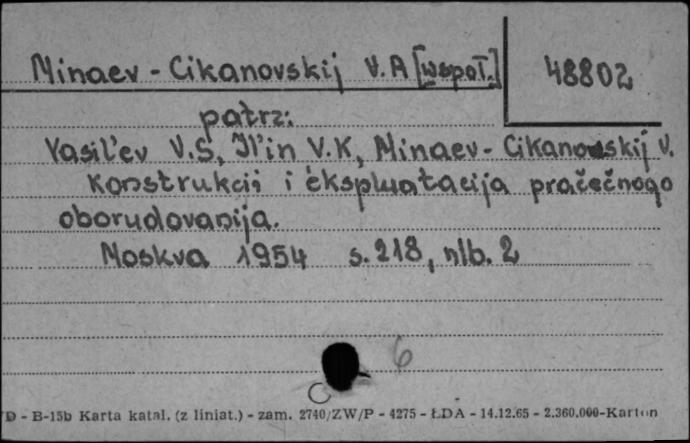 Minaev - Cikanovskij V.A [współ.]
48802
patrz:
Vasil'ev V.S, Il'in V.K, Minaev - Cikanovskij V.
Konstrukcii i èkspluatacija pračečnogo
oborudovanija.
Moskva 1954 s. 218, nlb. 2
6
D - B-15b Karta katal. (z liniat.) - zam. 2740/ZW/P - 4275 - ŁDA - 14.12.65 - 2.360.000-Karton